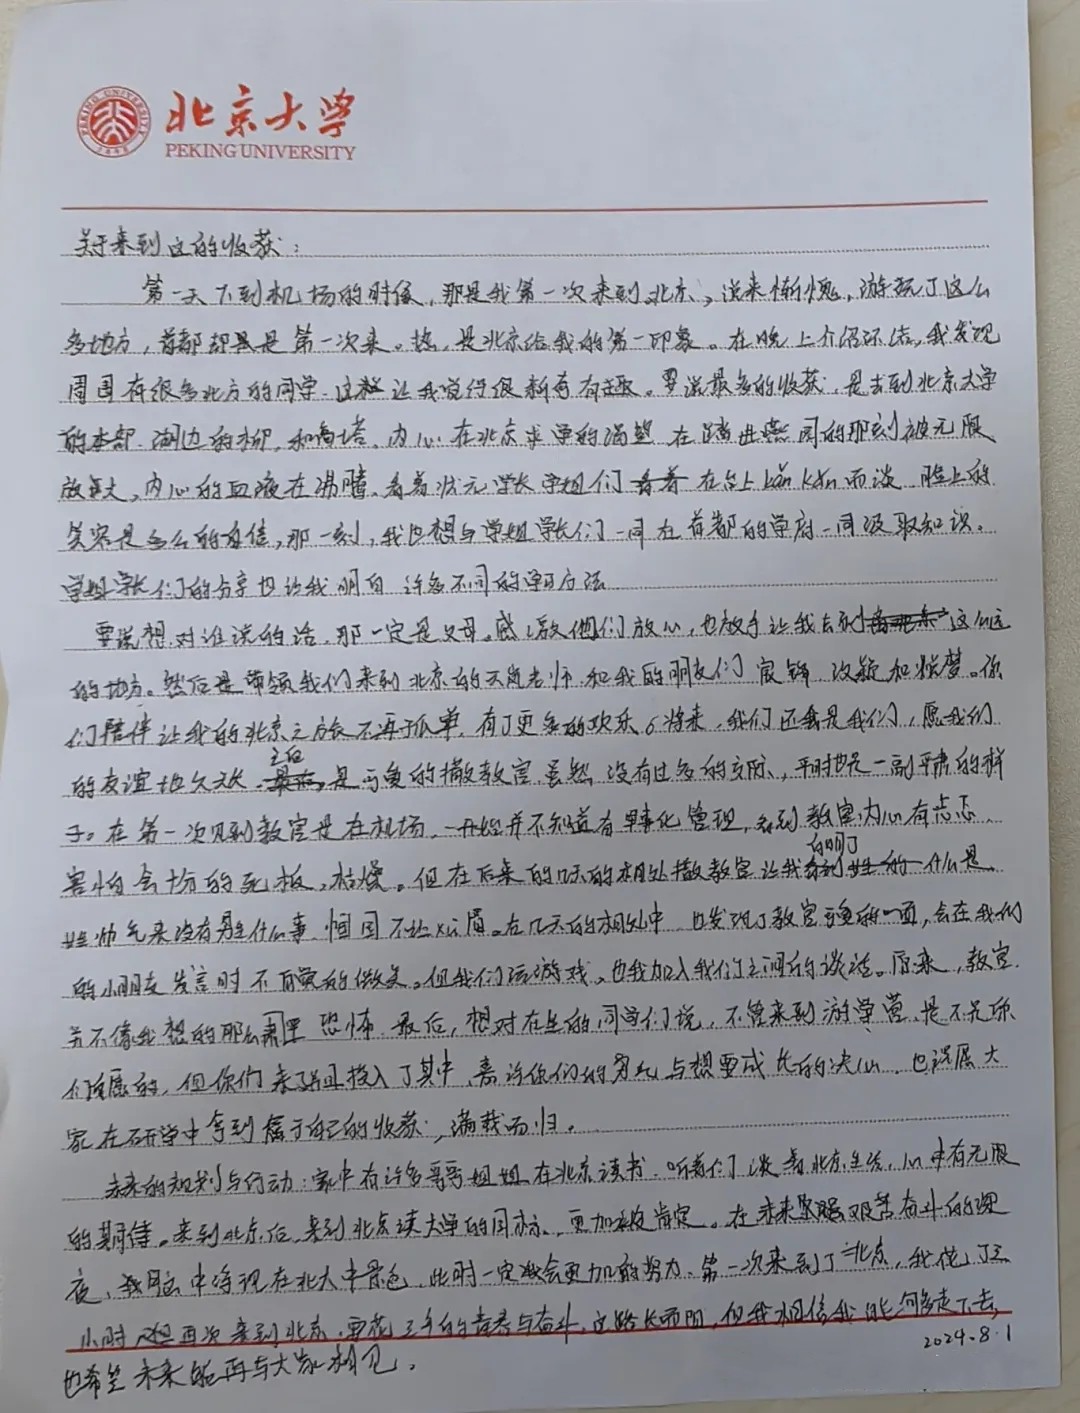 北京大学
PEKING UNIVERSITY
关于来到这的收获：
第一天下到机场的时候，那是我第一次来到北京，说来惭愧，游玩了这么
多地方，首都却是第一次来。热，是北京给我的第一印象。在晚上介绍环结，我发现
周围有很多北方的同学，这让我觉得很新奇有趣。要说最多的收获，是去到北京大学
的本部，湖边的柳，和高塔，内心在北京求学的渴望在踏进燕园的那刻被无限
放大，内心的血液在沸腾，看着状元学长学姐们在台上kǎn kǎn而谈，脸上的
笑容是多么的自信，那一刻，我也想与学姐学长们一同在首都的学府一同汲取知识。
学姐学长们的分享也让我明白许多不同的学习方法
要说想对谁说的话，那一定是父母。感激他们放心，也放手让我去到这么远
的地方。然后是带领我们来到北京的老师和我的朋友们。你
们陪伴让我的北京之旅不再孤单，有了更多的欢乐。将来，我们还是我们，愿我们
的友谊地久天长。是可爱的教官，虽然没有过多的交际，平时也是一副严肃的样
子。在第一次见到教官是在机场，一开始并不知道有军事化管理，看到教官，内心有忐忑、
害怕会十分的死板、枯燥。但在后来的几天的相处教官让我明白了什么是
帅气来没有男生什么事，巾国不让xū眉。在几天的相处中，也发现了教官可爱的一面，会在我们
的小朋友发言时不自觉的微笑。但我们玩游戏，也我加入我们之间的谈话。原来，教官
并不像我想的那么严肃恐怖。最后，想对在坐的同学们说，不管来到游学营，是不是你
们自愿的，但你们来了并且投入了其中，嘉许你们的努力与想要成长的决心，也祝愿大
家在研学中拿到属于自己的收获，满载而归。
未来的规划与行动：家中有许多哥哥姐姐在北京读书，听着他们谈着北京生活，心中有无限
的期待。来到北京后，来到北京读大学的目标，更加被肯定。在未来艰苦奋斗的深
夜，我脑中浮现在北大中景色，此时一定会更加的努力。第一次来到了北京，我花了三
小时，但再次来到北京，要花三年的青春与奋斗，这路长而阻，但我相信我能够走下去，
也希望未来能再与大家相见。
2024.8.1